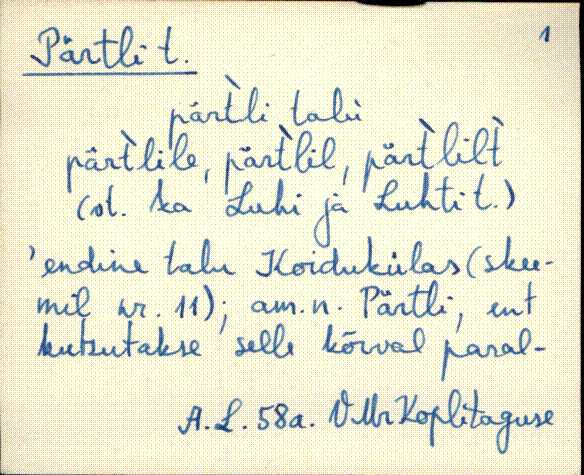 1
Pärtli t.
pär̀tli talù
pär̀tlile, pär̀tlil, pär̀tlilt̀
(vt. ka Luhi ja Luhti t.)
'endine talu Koidukülas (skee-
mil nr. 11); am.n. Pärtli, ent
kutsutakse selle kõrval paral-
A.L. 58a. VMr Koplitaguse